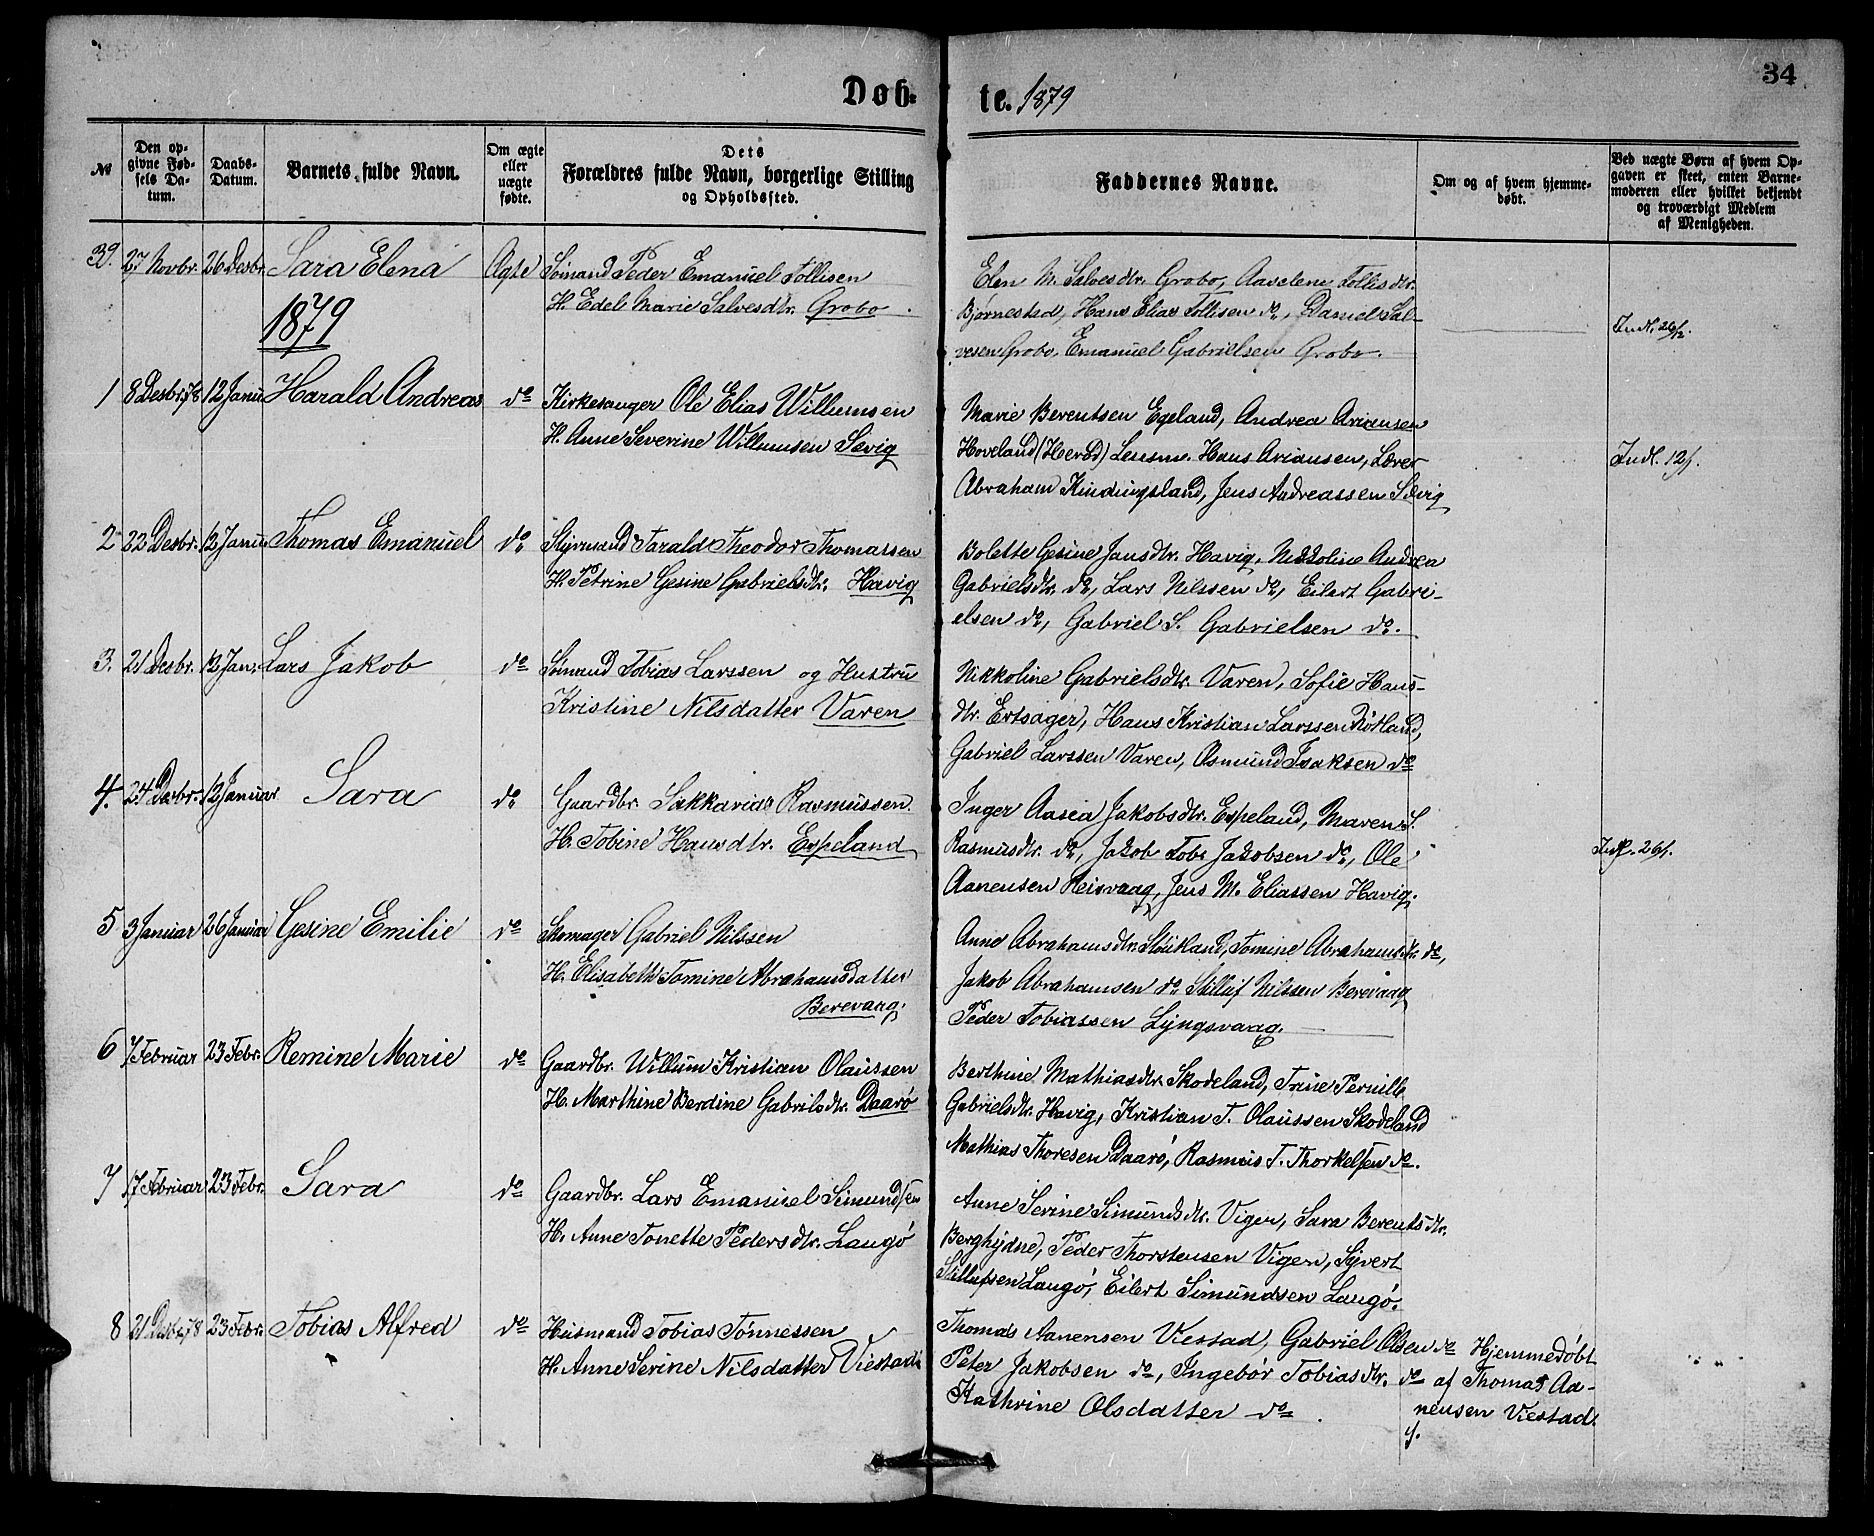 34
Døb-
te. 1879
№
Den opgivne Fødsels Datum.
Daabs-Datum.
Barnets fulde Navn.
Om ægte eller uægte fødte.
Dets
Forældres fulde Navn, borgerlige Stilling
og Opholdssted.
Faddernes Navne.
Om og af hvem hjemmedøbt.
Ved uægte Børn af hvem Opgaven er skeet, enten Barnemoderen eller hvilket bekjendt og troværdigt Medlem af Menigheden.
39. 27 Novbr. 26 Desbr. Sara Elena Ægte Sømand Peder Emanuel Tollisen
H. Edel Marie Salvesdtr. Grobo.
Elen M. Salvesdtr. Grobo, Aaselene Tollisdtr.
Bjørnestad, Hans Elias Tollisen do, Daniel Sal-
vesen Grobo, Emanuel Gabrielsen Grobo.
Indl. 26/2.
1879
1 8 Desbr. 78 12 Janu Harald Andreas do Kirkesanger Ole Elias Willumsen
H. Anne Severine Willumsen Sævig
Marie Berentsen Egeland, Andrea Ariansen
Hoveland (Herad) Lensm. Hans Ariansen, Lærer
Abraham Kindingsland, Jens Andreassen Sævig
Indl. 12/1.
2 22 Desbr. 12 Janu. Thomas Emanuel do Styrmand Tarald Theodor Thomassen
H. Petrine Gesine Gabrielsdtr. Havig
Bolette Gesine Jansdtr. Havig, Nikkoline Andrea
Gabrielsdtr. do, Lars Nilssen do, Eilert Gabri-
elsen do, Gabriel S. Gabrielsen do.
3. 21 Desbr. 12 Jan. Lars Jakob do Sømand Tobias Larssen og Hustru
Kristine Nilsdatter Varen
Nikkoline Gabrielsdtr. Varen, Sofie Hans-
dtr. Ertsager, Hans Kristian Larssen Røtland,
Gabriel Larssen Varen, Osmund Isaksen do
4. 24 Desbr. 12 Januar Sara do Gaardbr. Sakkarias Rasmussen
H. Tobine Hansdtr. Espeland
Inger Aasea Jakobsdtr. Espeland, Maren S.
Rasmusdtr. do, Jakob Tobs Jakobsen do, Ole
Aanensen Reisvaag, Jens M. Eliassen Havig.
Indl. 26/1.
5 3 Januar 26 Januar Gesine Emilie do Skomager Gabriel Nilssen
H. Elisabeth Tomine Abrahamsdatter
Berevaag.
Anne Abrahamsdtr. Støikland, Tomine Abrahamsdtr. do,
Jakob Abrahamsen do Stilluf Nilssen Berevaag
Peder Tobiassen Lyngsvaag.
6 7 Februar 23 Febr. Remine Marie do Gaardbr. Willum Kristian Olaussen
H. Marthine Berdine Gabrilsdtr. Daarø
Berthine Mathiasdtr. Skodeland, Trine Pernille
Gabrielsdtr. Havig, Kristian T. Olaussen Skodeland
Mathias Thoresen Daarø, Rasmus T. Thorkelsen do.
7 17 Februar 23 Febr. Sara do Gaardbr. Lars Emanuel Simundsen
H. Anne Tonette Pedersdtr. Langø
Anne Serine Simundsdtr. Vigen, Sara Berentsdtr.
Berghydne, Peder Thorstensen Vigen, Syvert
Stillufsen Langø, Eilert Simundsen Langø.
8 21 Desbr. 78 23 Febr. Tobias Alfred do Husmand Tobias Tønnessen
H. Anne Serine Nilsdatter Viestad
Thomas Aanensen Viestad, Gabriel Olsen do
Peter Jakobsen do, Ingebør Tobiasdtr. do
Kathrine Olsdatter do.
Hjemmedøbt
af Thomas Aa-
nensen Viestad.